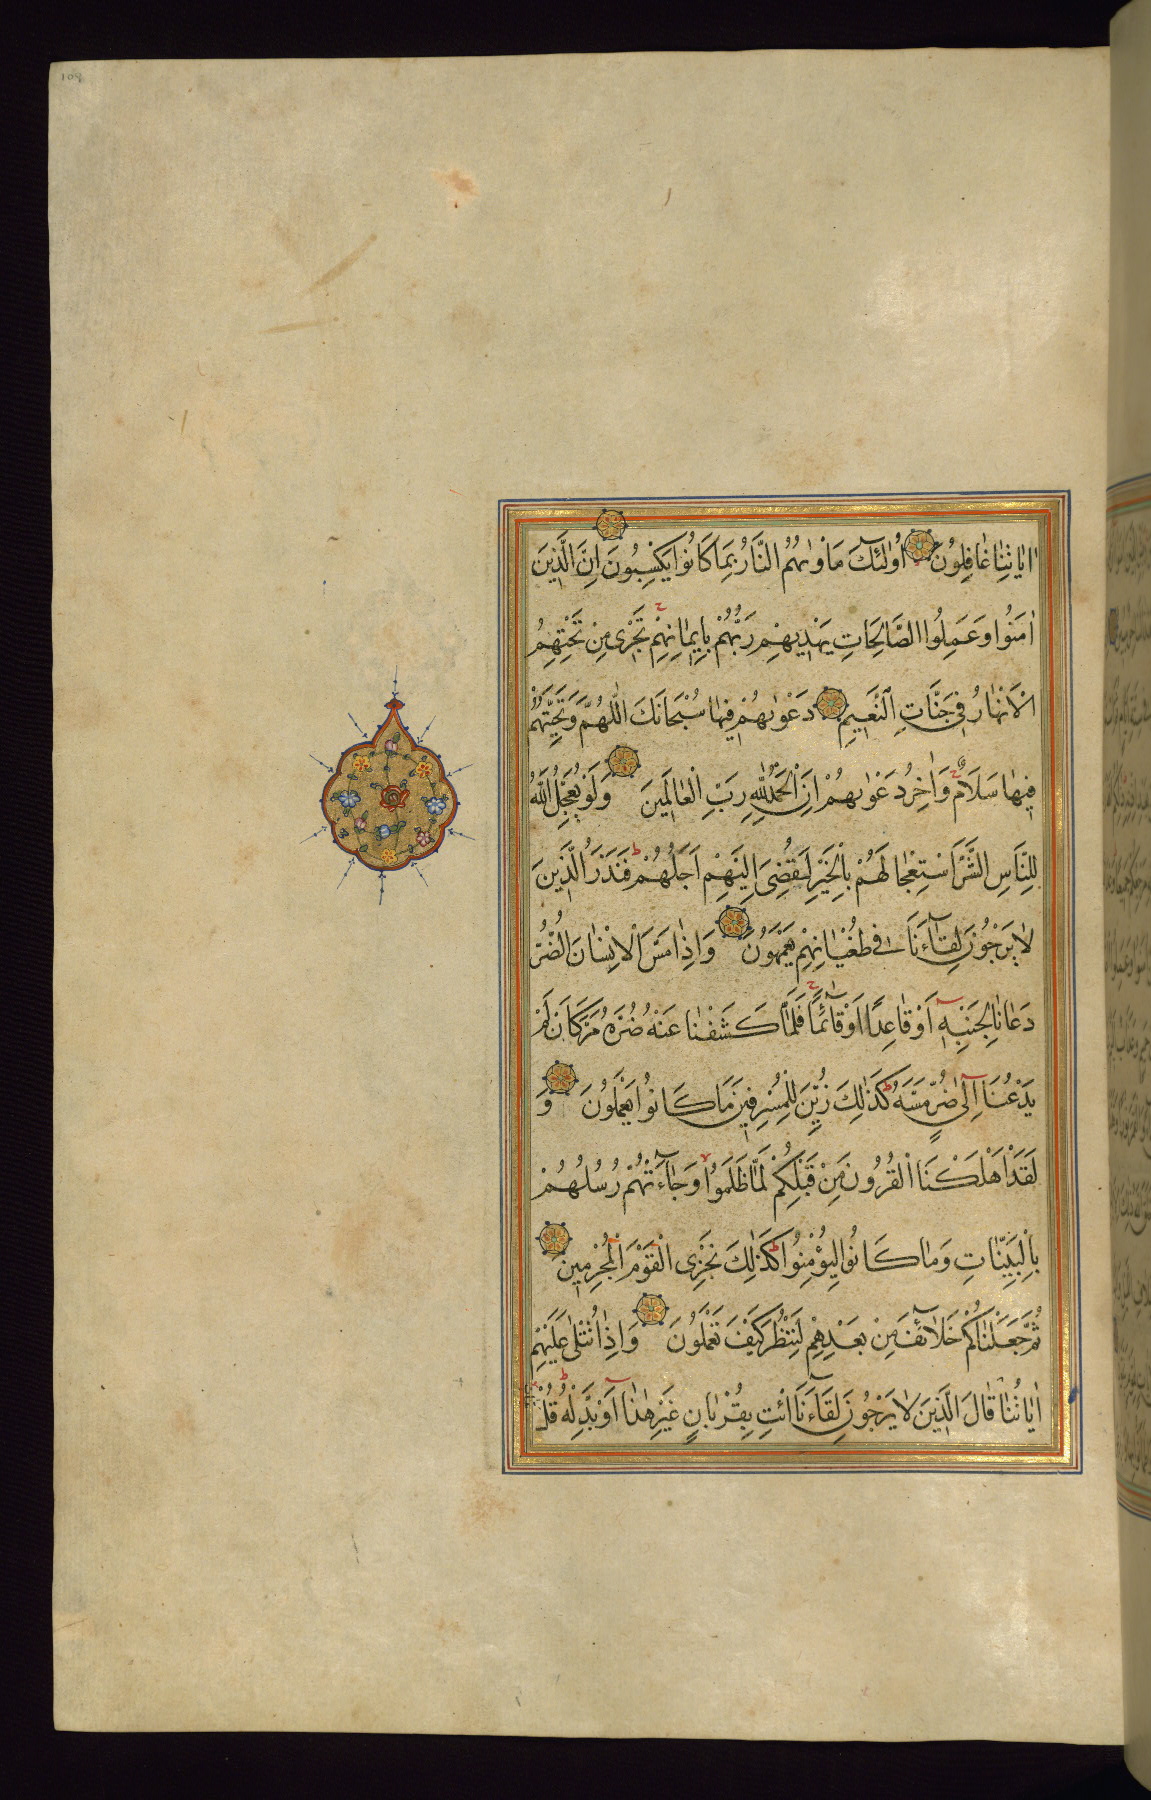 اٰيَاتِنَا غَافِلُونَ اُولٰئِكَ مَاْوٰيهُمُ النَّارُ بِمَا كَانُوا يَكْسِبُونَ اِنَّ الَّذِينَ
اٰمَنُوا وَعَمِلُوا الصَّالِحَاتِ يَهْدِيهِمْ رَبُّهُمْ بِاِيمَانِهِمْ تَجْرِى مِنْ تَحْتِهِمُ
الْاَنْهَارُ فِى جَنَّاتِ النَّعِيمِ دَعْوٰيهُمْ فِيهَا سُبْحَانَكَ اللّٰهُمَّ وَتَحِيَّتُهُمْ
فِيهَا سَلَامٌ وَاٰخِرُ دَعْوٰيهُمْ اَنِ الْحَمْدُ لِلّٰهِ رَبِّ الْعَالَمِينَ وَلَوْ يُعَجِّلُ اللّٰهُ
لِلنَّاسِ الشَّرَّ اسْتِعْجَالَهُمْ بِالْخَيْرِ لَقُضِىَ اِلَيْهِمْ اَجَلُهُمْ فَنَذَرُ الَّذِينَ
لَا يَرْجُونَ لِقَاءَنَا فِى طُغْيَانِهِمْ يَعْمَهُونَ وَاِذَا مَسَّ الْاِنْسَانَ الضُّرُّ
دَعَانَا لِجَنْبِهٖ اَوْ قَاعِدًا اَوْ قَائِمًا فَلَمَّا كَشَفْنَا عَنْهُ ضُرَّهُ مَرَّ كَاَنْ لَمْ
يَدْعُنَا اِلٰى ضُرٍّ مَسَّهُ كَذٰلِكَ زُيِّنَ لِلْمُسْرِفِينَ مَا كَانُوا يَعْمَلُونَ وَ
لَقَدْ اَهْلَكْنَا الْقُرُونَ مِنْ قَبْلِكُمْ لَمَّا ظَلَمُوا وَجَاءَتْهُمْ رُسُلُهُمْ
بِالْبَيِّنَاتِ وَمَا كَانُوا لِيُؤْمِنُوا كَذٰلِكَ نَجْزِى الْقَوْمَ الْمُجْرِمِينَ
ثُمَّ جَعَلْنَاكُمْ خَلَائِفَ مِنْ بَعْدِهِمْ لِنَنْظُرَ كَيْفَ تَعْمَلُونَ وَاِذَا تُتْلٰى عَلَيْهِمْ
اٰيَاتُنَا قَالَ الَّذِينَ لَا يَرْجُونَ لِقَاءَنَا ائْتِ بِقُرْاٰنٍ غَيْرِ هٰذَا اَوْ بَدِّلْهُ قُلْ